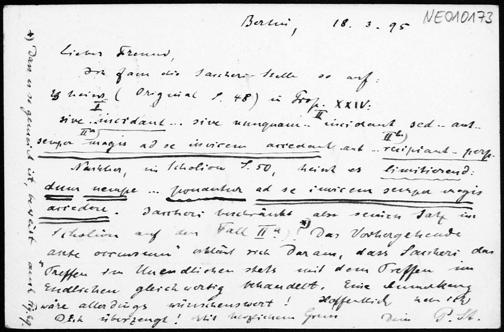 NE010173
Berlin, 18.3.95
Lieber Freund,
Ich fasse die Saccheri-Stelle so auf:
Es heisst (Original S. 48) in Prop. XXIV:
I II
sive .. incidant .. sive nunquam .. incidant sed .. aut ..
IIa) IIb)
semper magis ad se invicem accedant aut .. recipiant .. perp.
Nachher, im Scholion S. 50, heisst es limitierend:
dum nempe .. ponantur ad se invicem semper magis
accedere. Saccheri beschränkt also seinen Satz im
Scholion auf den Fall IIa)! *) Das Vorhergehende
ante occursum erklärt sich daraus, dass Saccheri das
"Treffen im Unendlichen stets mit dem Treffen im
Endlichen gleichwertig behandelt. Eine Anmerkung
wäre allerdings wünschenswert! Hoffentlich
Dich überzeugt! Mit herzlichem Gruss Dein P. St.
*) Dass es so gemeint ist, beweist auch